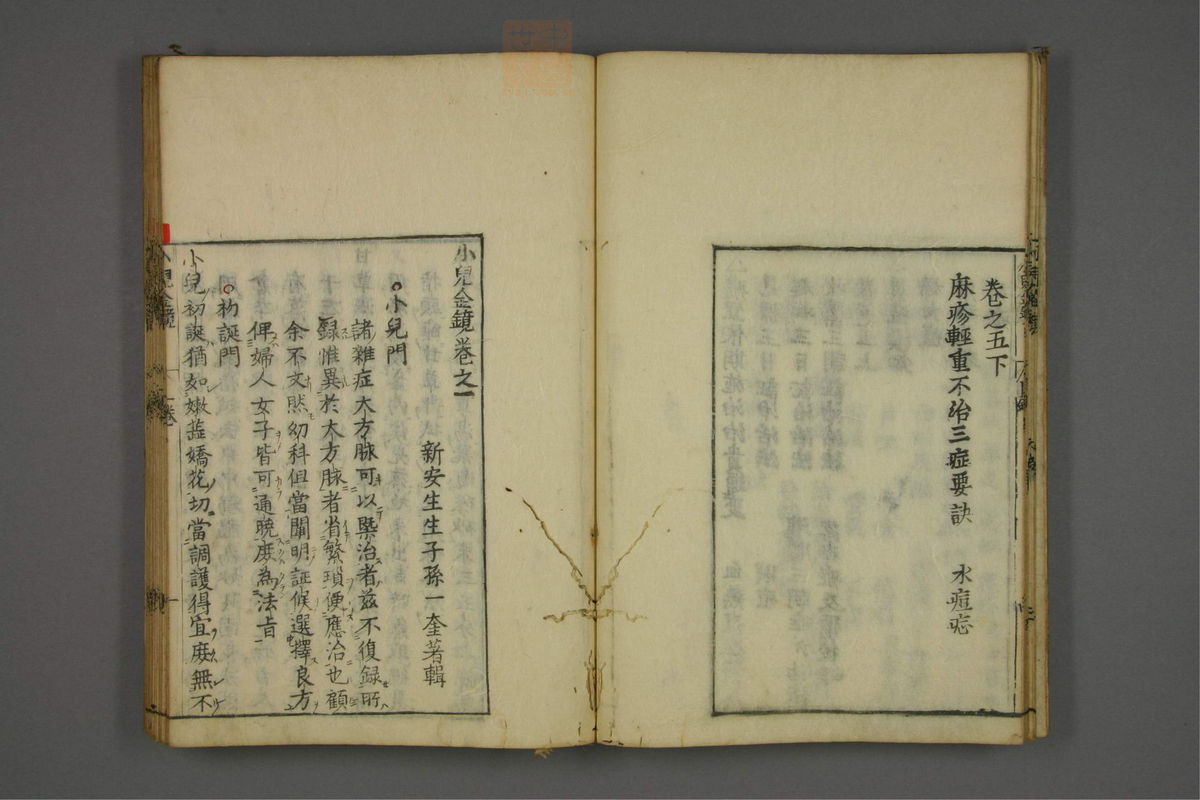 卷之五下
麻疹輕重不治三症要訣　水痘𤵸
小兒金鏡卷之一
新安生生子孫一奎著輯
小兒門
諸雜症大方脉可以槩治者茲不復録所
録惟異於大方脉者省繁瑣便應治也顧
余不文然幼科但當闡明証候選擇良方
俾婦人女子皆可通曉庻為法旨
初誕門
小兒初誕猶如嫩蕋嬌花切當調護得宜庻無不
小兒金鏡
卷